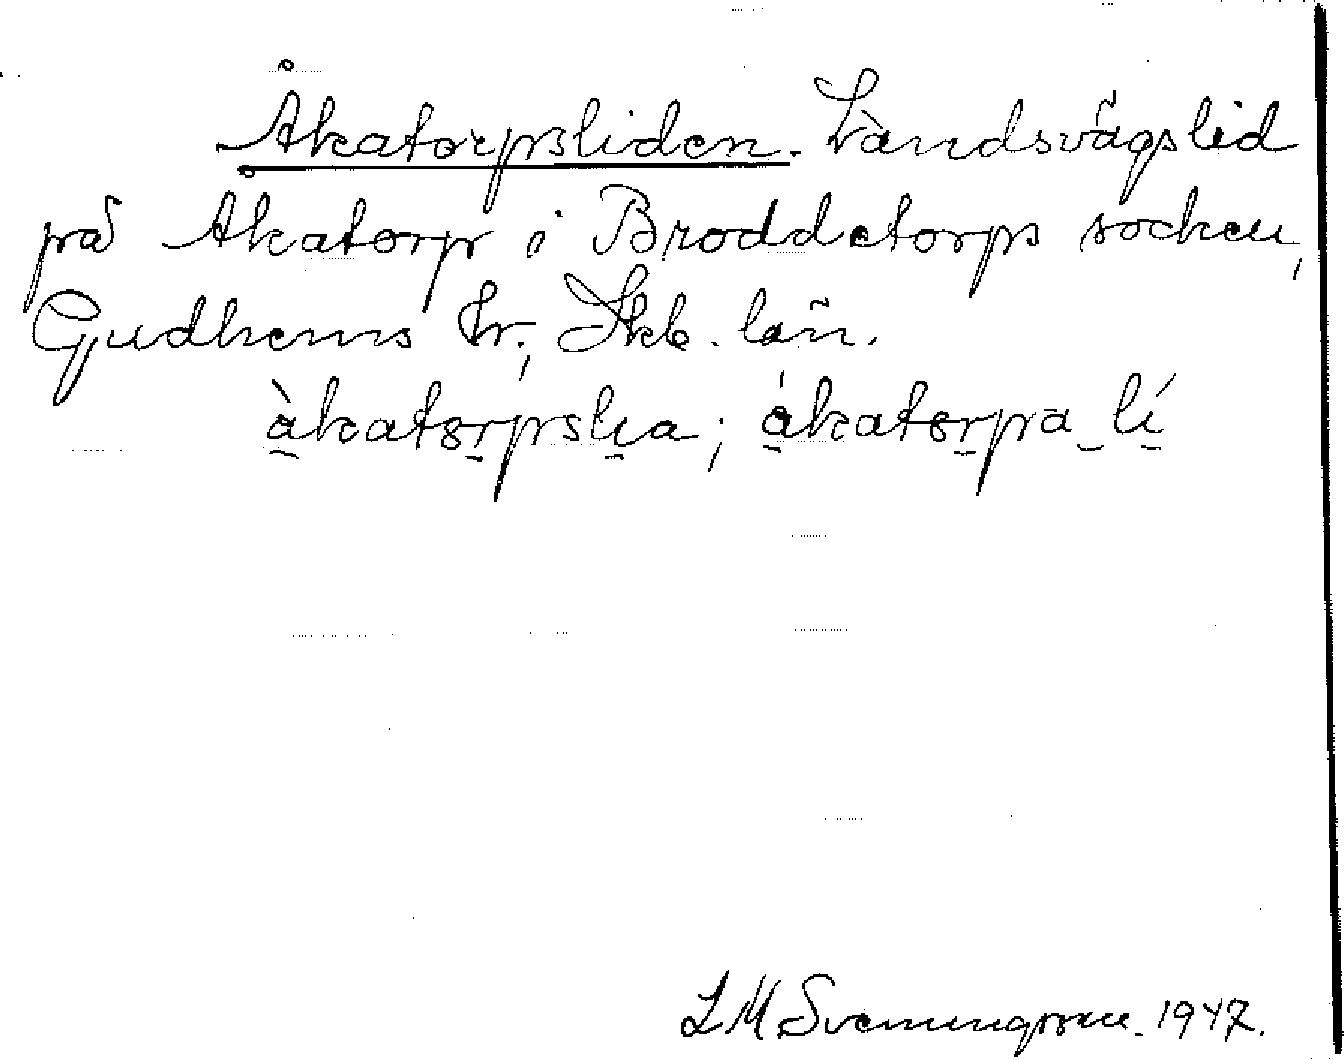 Åkatorpsliden. Landsvägslid
på Åkatorp i Broddetorps socken,
Gudhems hr., Skb. län.
àkatorpslia; ákatorpa lí
L M Svenungsson. 1947.